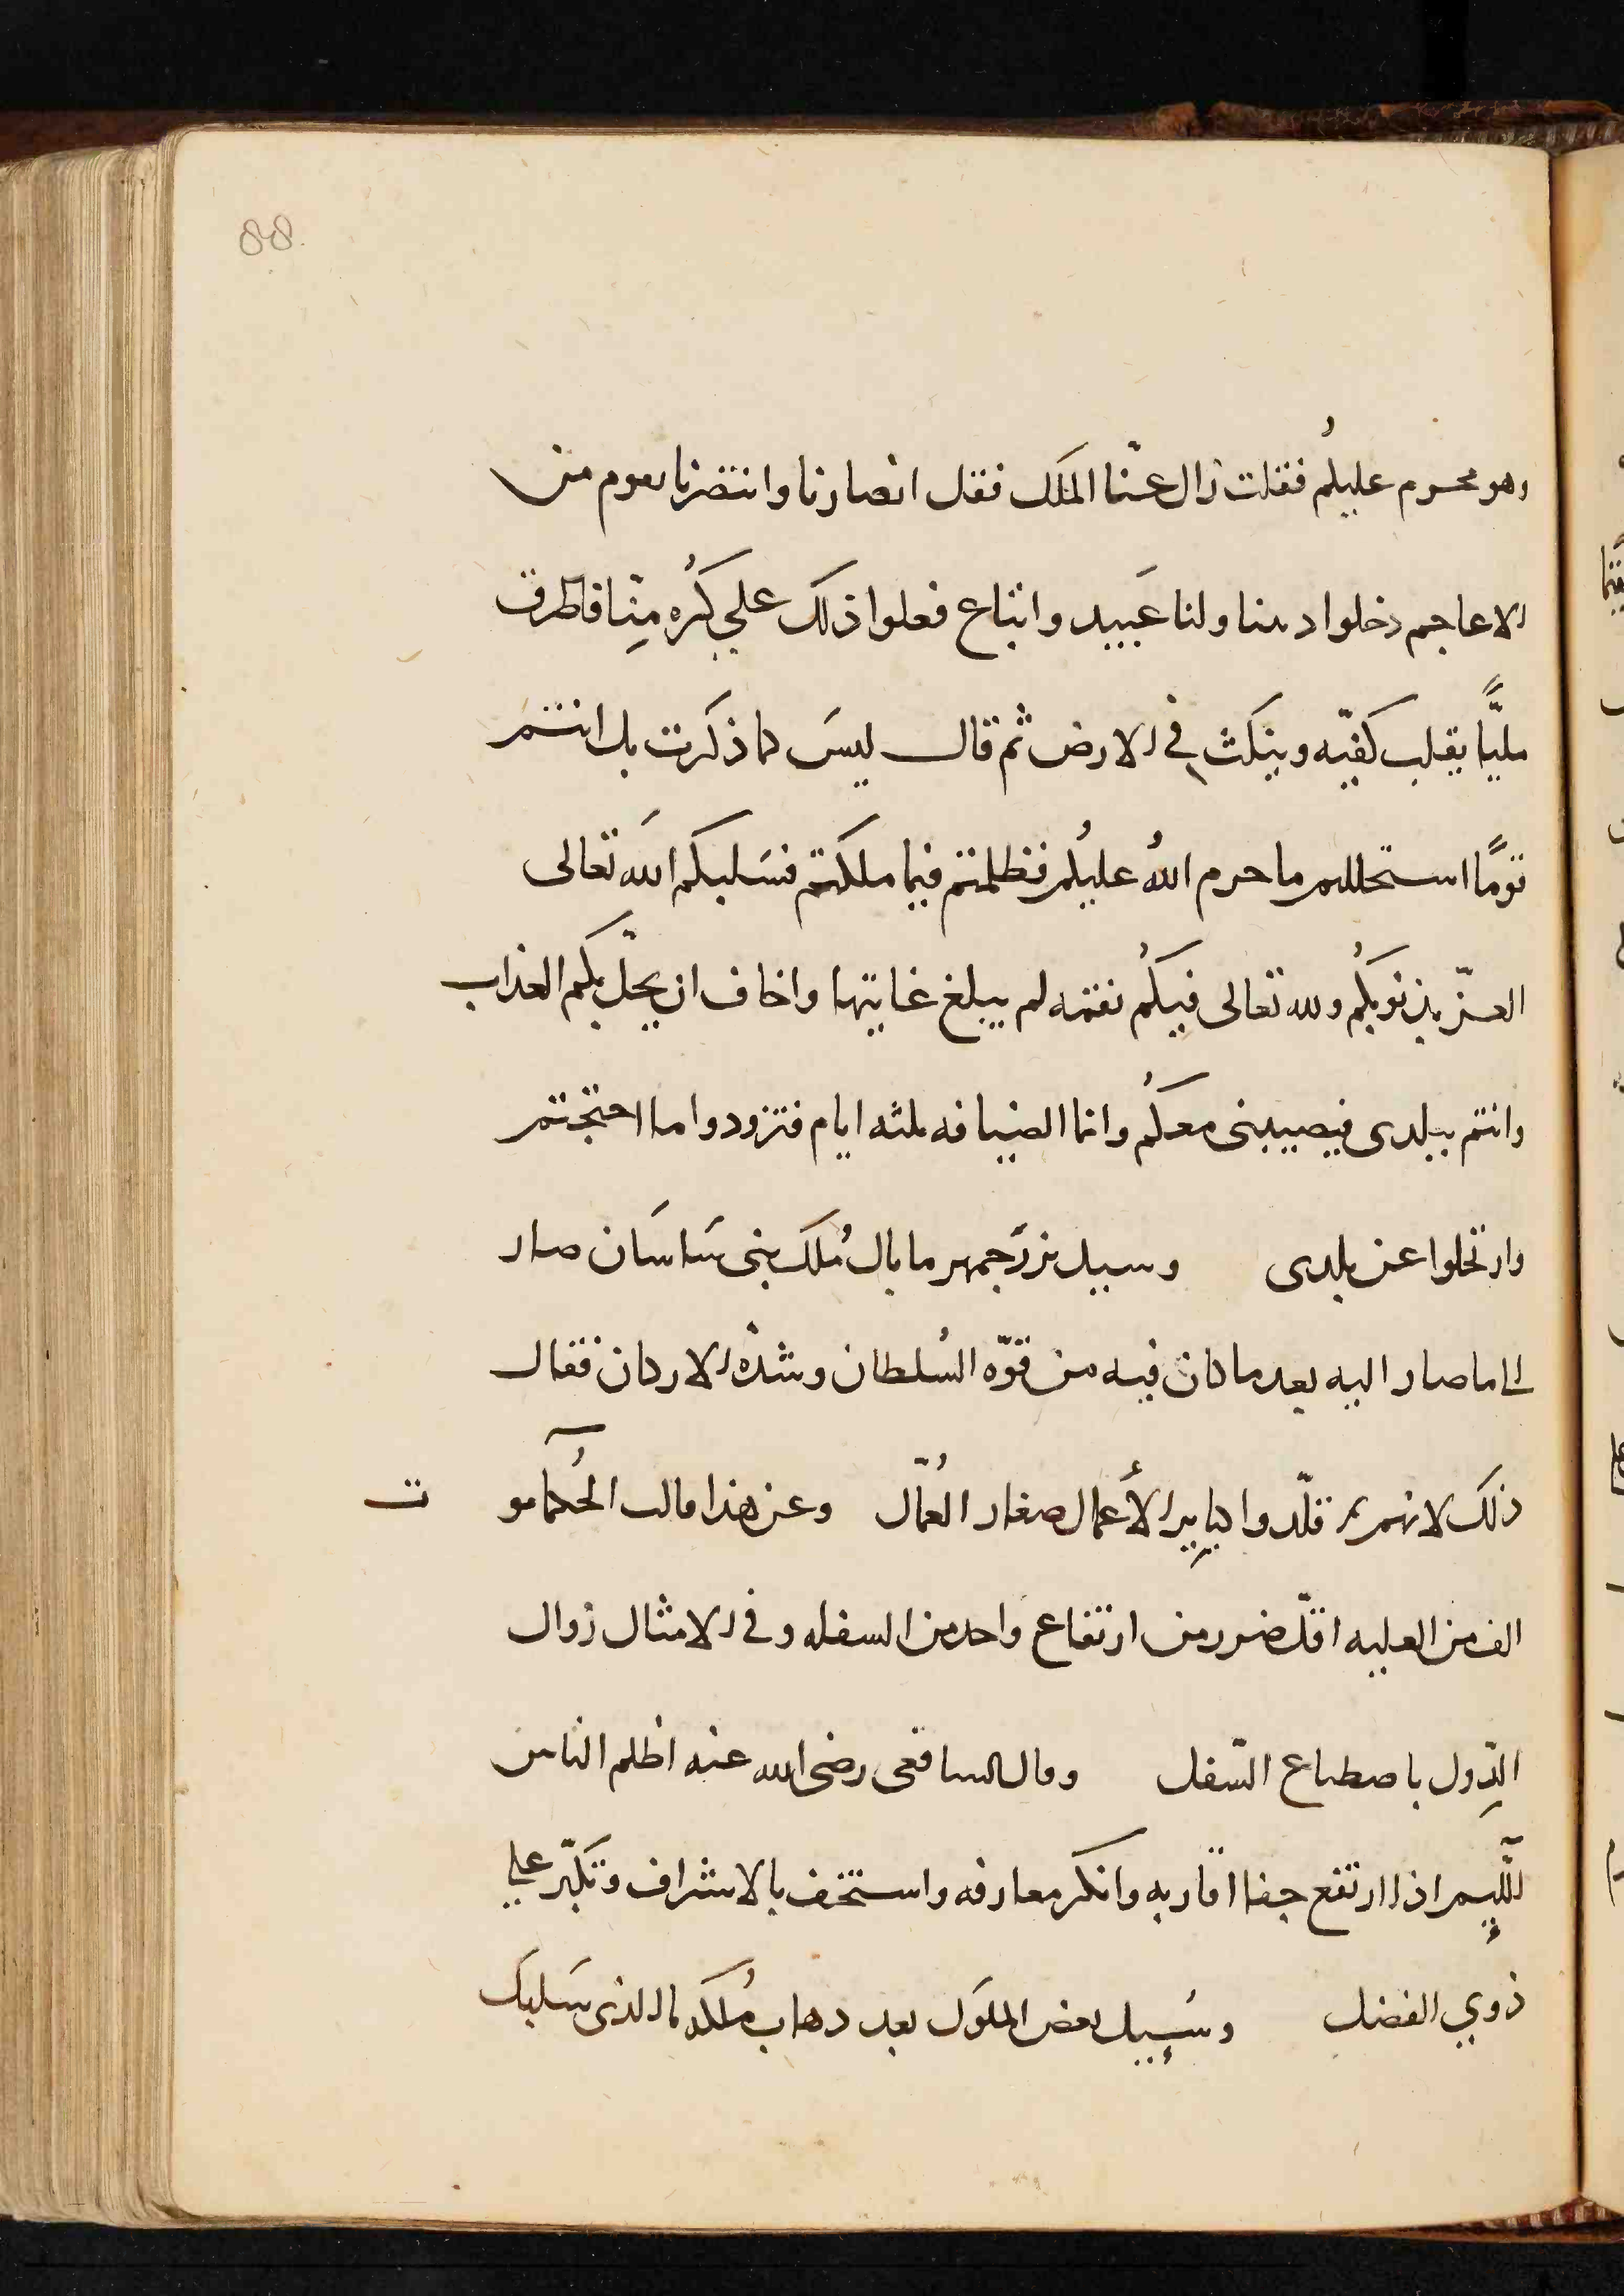 88
وهو محرم عليكُم فقلت زال عنّا الملَك فقل انصارنا وانتصرنا بقوم من
الاعاجم دخلوا ديننا ولنا عَبيد واتباع فعلوا ذلك علي كُره مِنّا فاطرق
مليًّا يقلب كفيّه وينكث في الارض ثم قال ليسَ كما ذكرت بل انتم
قومًا استحللتم ما حرم اللهُ عليكُم فظلمتم فيما ملكتم فسَلبكم اللهَ تعالى
العزّ بذنوبكُم ولله تعالى فيكُم نقمه لم يبلغ غايتها واخاف ان يحلّ بكم العذاب
وانتم ببلدى فيصيبنى معكُم وانما الضيافه ثلثه ايام فتزودوا ما احتجتم
وارتحلوا عن بلدى وسيل بزرَجمهر ما بال مُلك بنى سَاسَان صار
الى ما صار اليه بعد ما كان فيه من قوّه السُلطان وشدّه الاركان فقال
ذلك لانهم قلّدوا كبايِر الأعمال صغار العُمّال وعن هذا قالت الحُكما موت
الف من العليه اقلّ ضرر من ارتفاع واحد من السفله وفي الامثال زوال
الدِّوَل باصطناع السّفل وقال الشافعى رضى الله عنه اظلم الناس
اللّئيم اذا ارتفع جفا اقاربه وانكر معارفه واستخف بالاشراف وتكبّر علي
ذوي الفضل وسُئِيل بعض الملوَك بعد دهاب مُلكه ما الذى سَلبك